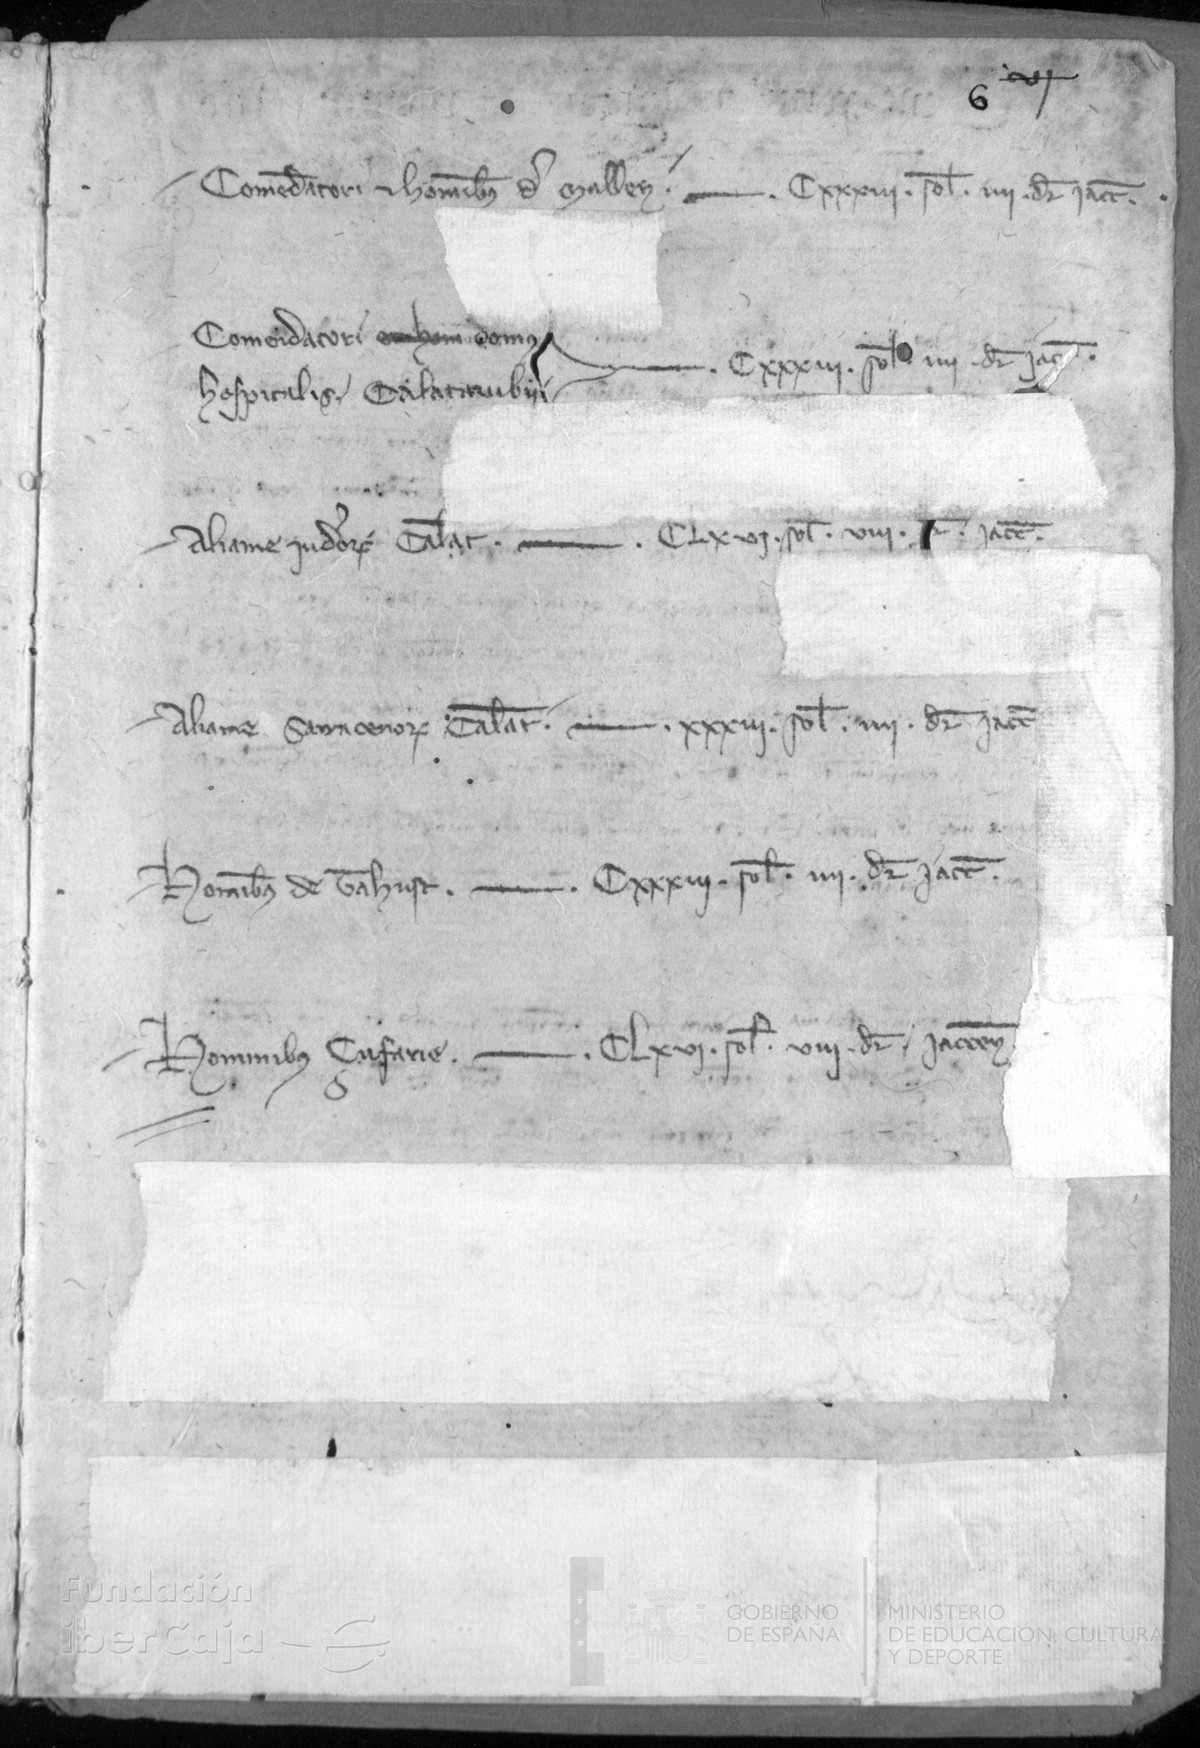 6 vj
Comendatori & hominibȝ de Mallen. — . Cxxxiii. sol. iiii. dr jacc.
Comendatori et hom domus
hospitalis Calatanubii — . Cxxxiii. sol. iiii. dr jacc.
Aliame judeorꝝ Calat. — . CLxvj. sol. viii. dr. jacc.
Aliame Sarracenorꝝ Calat. — . xxxiii. sol. iiii. dr jacc
Hominibȝ de Tahust. — . Cxxxiii. sol. iiii. dr jacc.
Hominibus Çuffarie. — . CLxvi. sol. viii. dr jaccen
Fundación
iberCaja
GOBIERNO
DE ESPAÑA
MINISTERIO
DE EDUCACIÓN, CULTURA
Y DEPORTE